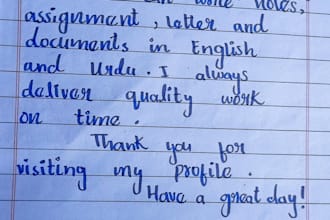 write notes,
assignment, letter and
documents in English
and Urdu. I always
deliver quality work
on time.
Thank you for
visiting my profile.
Have a great day!